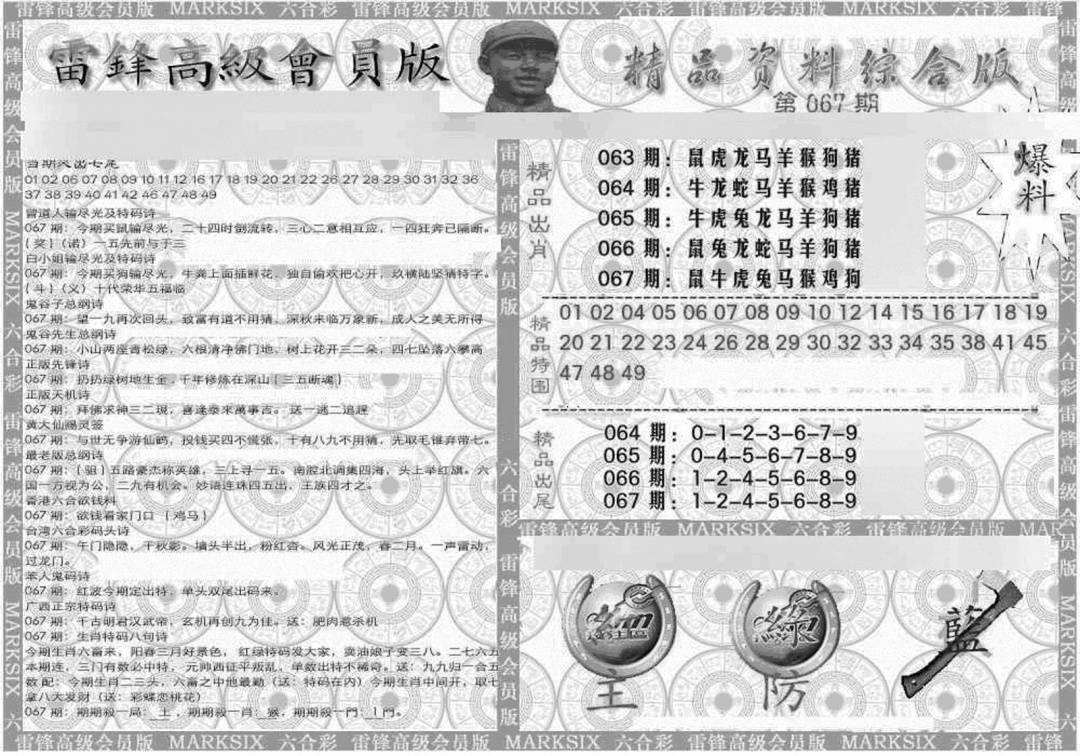 雷锋高级会员版 MARKSIX 六合彩 雷锋高级会员版 MARKSIX 六合彩 雷锋高级会员版 MARKSIX 六合彩 雷锋
雷鋒高級會員版
精品資料綜合版
第067期
01 02 06 07 08 09 10 11 12 16 17 18 19 20 21 22 26 27 28 29 30 31 32 36
37 38 39 40 41 42 46 47 48 49
曾道人输尽光及特码诗
067 期：今期买鼠输尽光，二十四时倒流转，三心二意相互应，一四狂奔已隔断。
{奖}（诺）一五先前与于三
白小姐输尽光及特码诗
067 期：今期买狗输尽光，牛粪上面插鲜花，独自偷欢把心开，玖横陆坚猜特字。
{斗}（义）十代荣华五福临
鬼谷子总纲诗
067 期：望一九再次回头，致富有道不用猜，深秋来临万象新，成人之美无所得
鬼谷先生总纲诗
067 期：小山两座青松绿，六根清净佛门地，树上花开三二朵，四七坠落六攀高
正版先锋诗
067 期：扔扔绿树地生金，千年修炼在深山{三五断魂}
正版天机诗
067 期：拜佛求神三二現，喜逢泰來萬事吉。送一逃二追趕
黄大仙赐灵签
067 期：与世无争游仙鹤，投钱买四不慌张，十有八九不用猜，先取毛锥弃带七。
最老版总纲诗
067 期：{驵}五路豪杰称英雄，三上寻一五。南腔北调集四海，头上举红旗。六
国一五视为公，二九有机会。妙语连珠四五出，王族四才之。
香港六合欲钱料
067 期：欲钱看家门口 {鸡马}
台湾六合彩码头诗
067 期：午门隐隐，千秋影。墙头半出，粉红杏。风光正茂，春二月。一声雷动，
过龙门。
苯人鬼码诗
067 期：红波今期定出特，单头双尾出码来。
广西正宗特码诗
067 期：千古明君汉武帝，玄机再创九为佳。送：肥肉惹杀机
067 期：生肖特码八句诗
今期生肖六畜来，阳春三月好景色，红绿特码发大家，卖油娘子变三八。二七六五
本期连，三门有数必中特，元帅西征平叛乱，单数出特不稀奇。送：九九归一合五
数 配：今期生肖二三头，六畜之中他最勤（送：特码在内）今期生肖中间开，取七
拿八大发财（送：彩蝶恋桃花）
067 期：期期殺一局：土，期期殺一肖：猴，期期殺一門：1門。
精品出肖
063 期：鼠虎龙马羊猴狗猪
064 期：牛龙蛇马羊猴鸡猪
065 期：牛虎兔龙马羊狗猪
066 期：鼠兔龙蛇马羊猴狗
067 期：鼠牛虎兔马猴鸡狗
爆料
精品特围
01 02 04 05 06 07 08 09 10 12 14 15 16 17 18 19
20 21 22 23 24 26 28 29 30 32 33 34 35 38 41 45
47 48 49
精品出尾
064 期：0-1-2-3-6-7-9
065 期：0-4-5-6-7-8-9
066 期：1-2-4-5-6-8-9
067 期：1-2-4-5-6-8-9
雷锋高级会员版 MARKSIX 六合彩 雷锋高级会员版
主
防
藍
雷锋高级会员版 MARKSIX 六合彩 雷锋高级会员版 MARKSIX 六合彩 雷锋高级会员版 MARKSIX 六合彩 雷锋